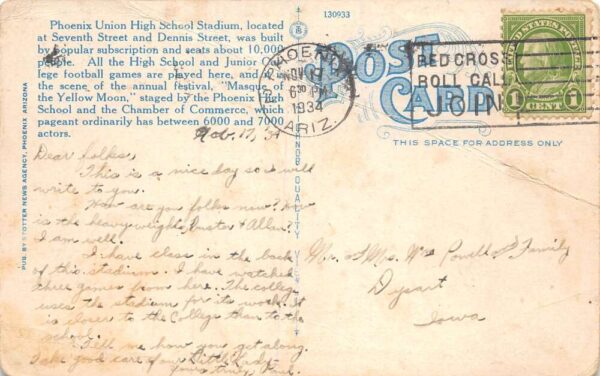 Phoenix Union High School Stadium, located
at Seventh Street and Dennis Street, was built
by popular subscription and seats about 10,000
people. All the High School and Junior Col-
lege football games are played here, and
the scene of the annual festival, "Masque of
the Yellow Moon," staged by the Phoenix High
School and the Chamber of Commerce, which
pageant ordinarily has between 6000 and 7000
actors.
130933
POST
CARD
THIS SPACE FOR ADDRESS ONLY
PHOENIX
NOV 17
630 PM
1934
ARIZ.
RED CROSS
ROLL CALL
JOIN
UNITED STATES POSTAGE
1 CENT 1
PUB. BY STOTTER NEWS AGENCY, PHOENIX ARIZONA
QUALITY VIEW
Nov. 17, 34
Dear folks,
This is a nice day so I will
write to you.
How are you folks now? How
is the heavyweight, Buster & Allan?
I am well.
I have class in the back
of this stadium. I have watched
three games from here. The college
uses the stadium for its work. It
is closer to the College than to the
school.
Tell me how you get along.
Take good care of our Little Lady.
Yours truly, Paul.
Mr. & Mrs. Wm Powell and Family
Dysart
Iowa